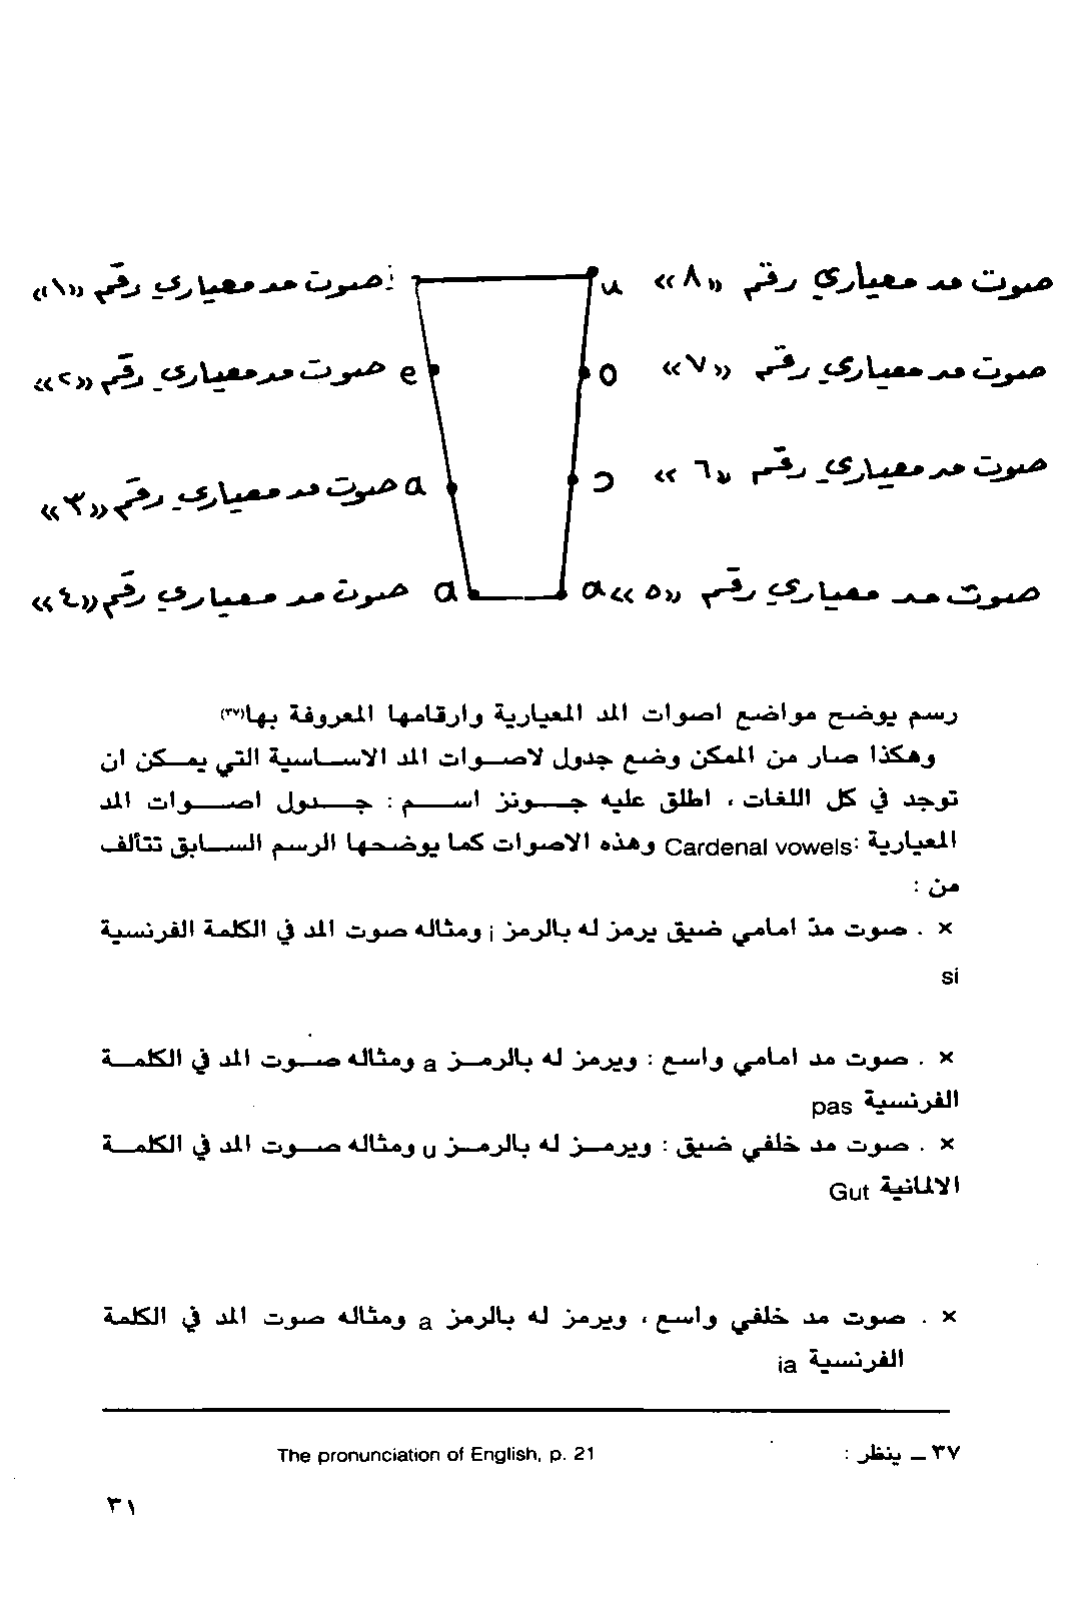 صوت مد معياري رقم «٨» u i صوت مد معياري رقم «١»
صوت مد معياري رقم «٧» o e صوت مد معياري رقم «٢»
صوت مد معياري رقم «٦» ɔ a صوت مد معياري رقم «٣»
صوت مد معياري رقم «٥» a a صوت مد معياري رقم «٤»
رسم يوضح مواضع اصوات المد المعيارية وارقامها المعروفة بها(٣٧)
وهكذا صار من الممكن وضع جدول لاصوات المد الاساسية التي يمكن ان
توجد في كل اللغات ، اطلق عليه جونز اسم : جدول اصوات المد
المعيارية :Cardenal vowels وهذه الاصوات كما يوضحها الرسم السابق تتألف
من :
× . صوت مدّ امامي ضيق يرمز له بالرمز i ومثاله صوت المد في الكلمة الفرنسية
si
× . صوت مد امامي واسع : ويرمز له بالرمز a ومثاله صوت المد في الكلمة
الفرنسية pas
× . صوت مد خلفي ضيق : ويرمز له بالرمز u ومثاله صوت المد في الكلمة
الالمانية Gut
× . صوت مد خلفي واسع ، ويرمز له بالرمز a ومثاله صوت المد في الكلمة
الفرنسية ia
٣٧ ــ ينظر : The pronunciation of English, p. 21
٣١